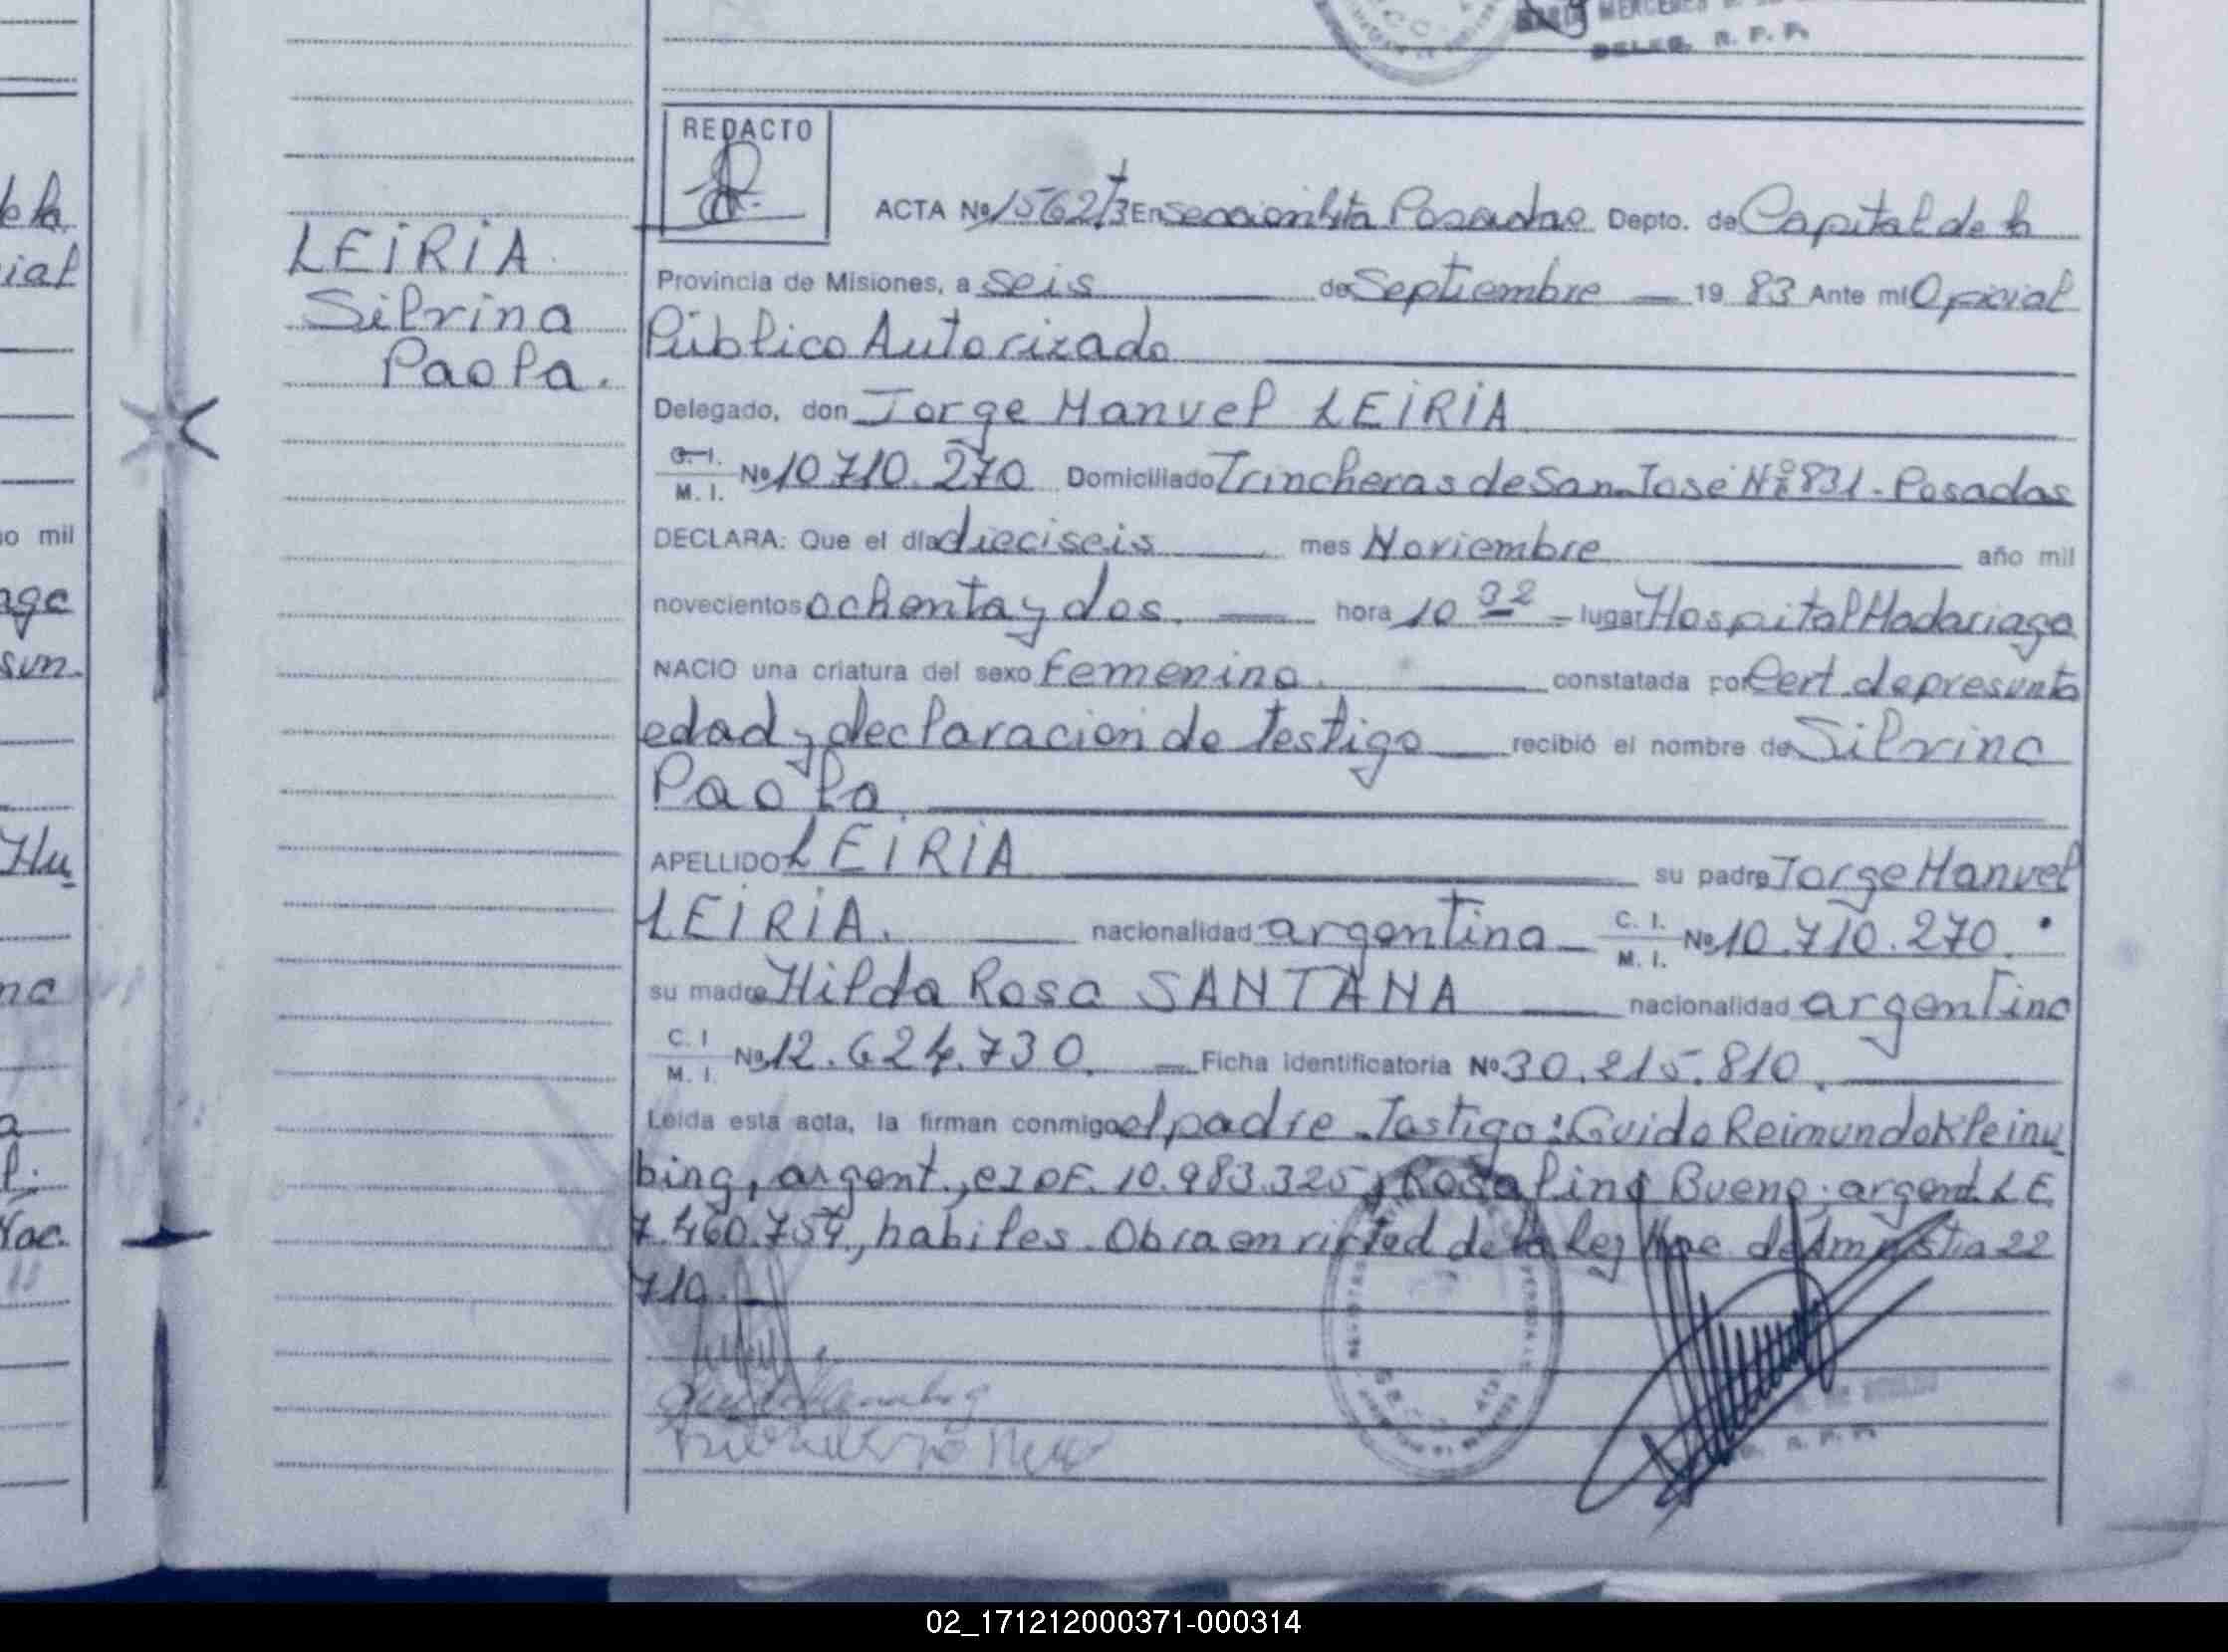 DELEG. R. P. P.
REDACTO
ACTA Nº 1562 T3 En seccion 1ta Posadas Depto. de Capital de la
LEIRIA
Silvina
Paola.
Provincia de Misiones, a seis de Septiembre 19 83 Ante mi Oficial
Público Autorizado
Delegado, don Jorge Manuel LEIRIA
C. I.
M. I. Nº 10.710.270 Domiciliado Trincheras de San José Nº 831 - Posadas
DECLARA: Que el día dieciseis mes Noviembre año mil
novecientos ochenta y dos. hora 10 32 lugar Hospital Madariaga
NACIO una criatura del sexo femenino. constatada por Cert. de presunta
edad y declaracion de testigo recibió el nombre de Silvina
Paola
APELLIDO LEIRIA su padre Jorge Manuel
LEIRIA. nacionalidad argentina C. I.
M. I. Nº 10.710.270.
su madre Hilda Rosa SANTANA nacionalidad argentina
C. I
M. I. Nº 12.624.730. Ficha identificatoria Nº 30.215.810.
Leída esta acta, la firman conmigo el padre. Testigo: Guido Reimundo Kleinu
bing, argent., CI DF. 10.983.325 y Rosalino Bueno, argent. LE
7.460.754, habiles. Obra en virtud de la ley de Amnistia 22
710.
R. P. P.
le la
ial
o mil
age
sun.
Hu
na
a
l.
Nac.
02_171212000371-000314